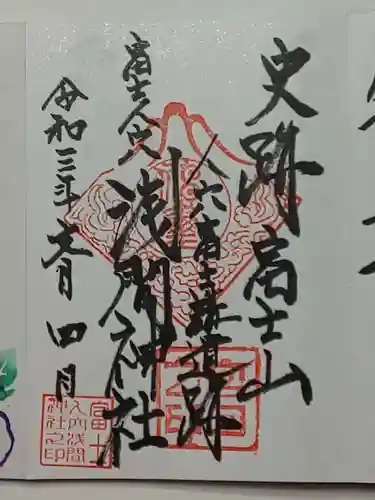 史跡 富士山
人穴富士講遺跡
富士人穴
浅間神社
令和三年 月 四日
富士
人穴浅間
神社之印